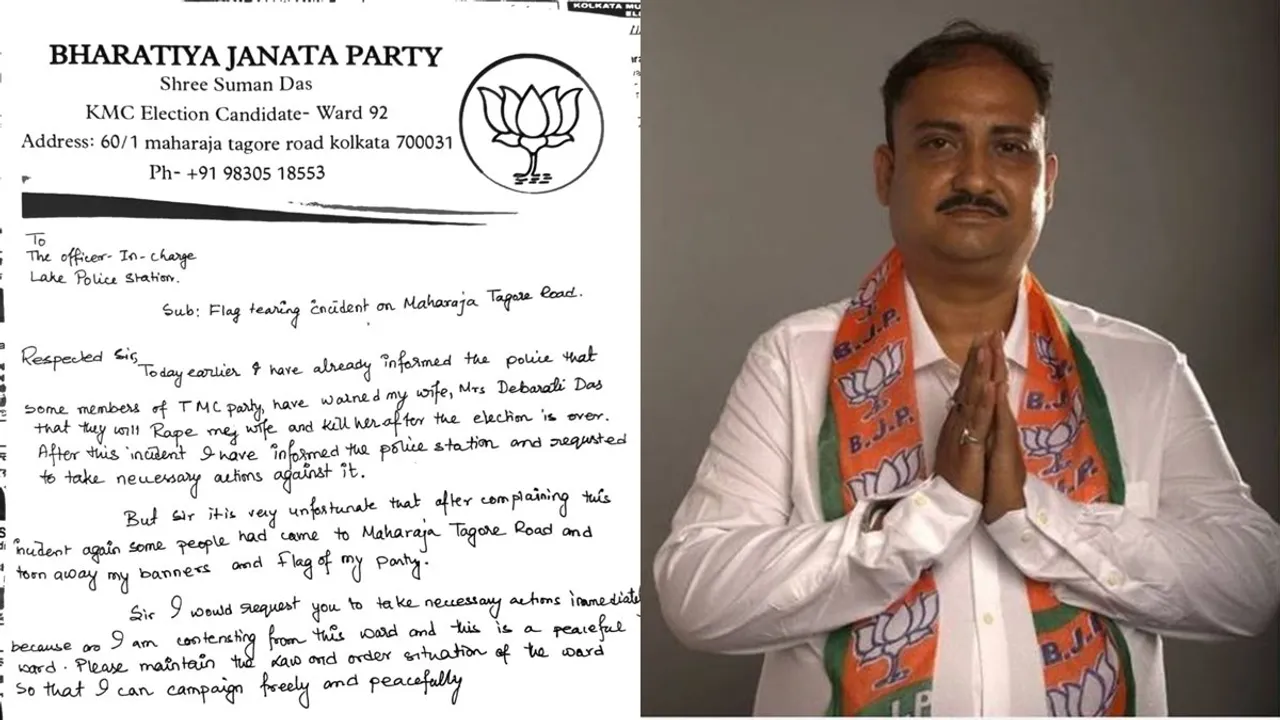 BHARATIYA JANATA PARTY
Shree Suman Das
KMC Election Candidate- Ward 92
Address: 60/1 maharaja tagore road kolkata 700031
Ph- +91 98305 18553
To
The officer-In-charge
Lake Police Station.
Sub: Flag tearing incident on Maharaja Tagore Road.
Respected Sir,
Today earlier I have already informed the police that
some members of TMC party, have warned my wife, Mrs Debarati Das
that they will Rape mey wife and kill her after the election is over.
After this incident I have informed the police station and requsted
to take necessary actions against it.
But Sir it is very unfortunate that after complaining this
incident again some people had came to Maharaja Tagore Road and
torn away my banners and Flag of my party.
Sir I would request you to take necessary actions immediatel
because as I am contensting from this ward and this is a peaceful
ward. Please maintain the Law and order situation of the ward
so that I can campaign freely and peacefully
KOLKATA MU
B.J.P.
B.J.P.
B.J.P.
B.J.P.
B.J.P.
J.P